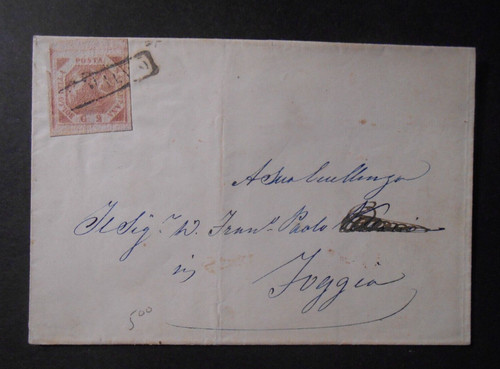 POSTA
NAPOLETANA
G 2
A Sua Eccellenza
Il Sig.r D. Fran.co Paolo
in
Foggia
500